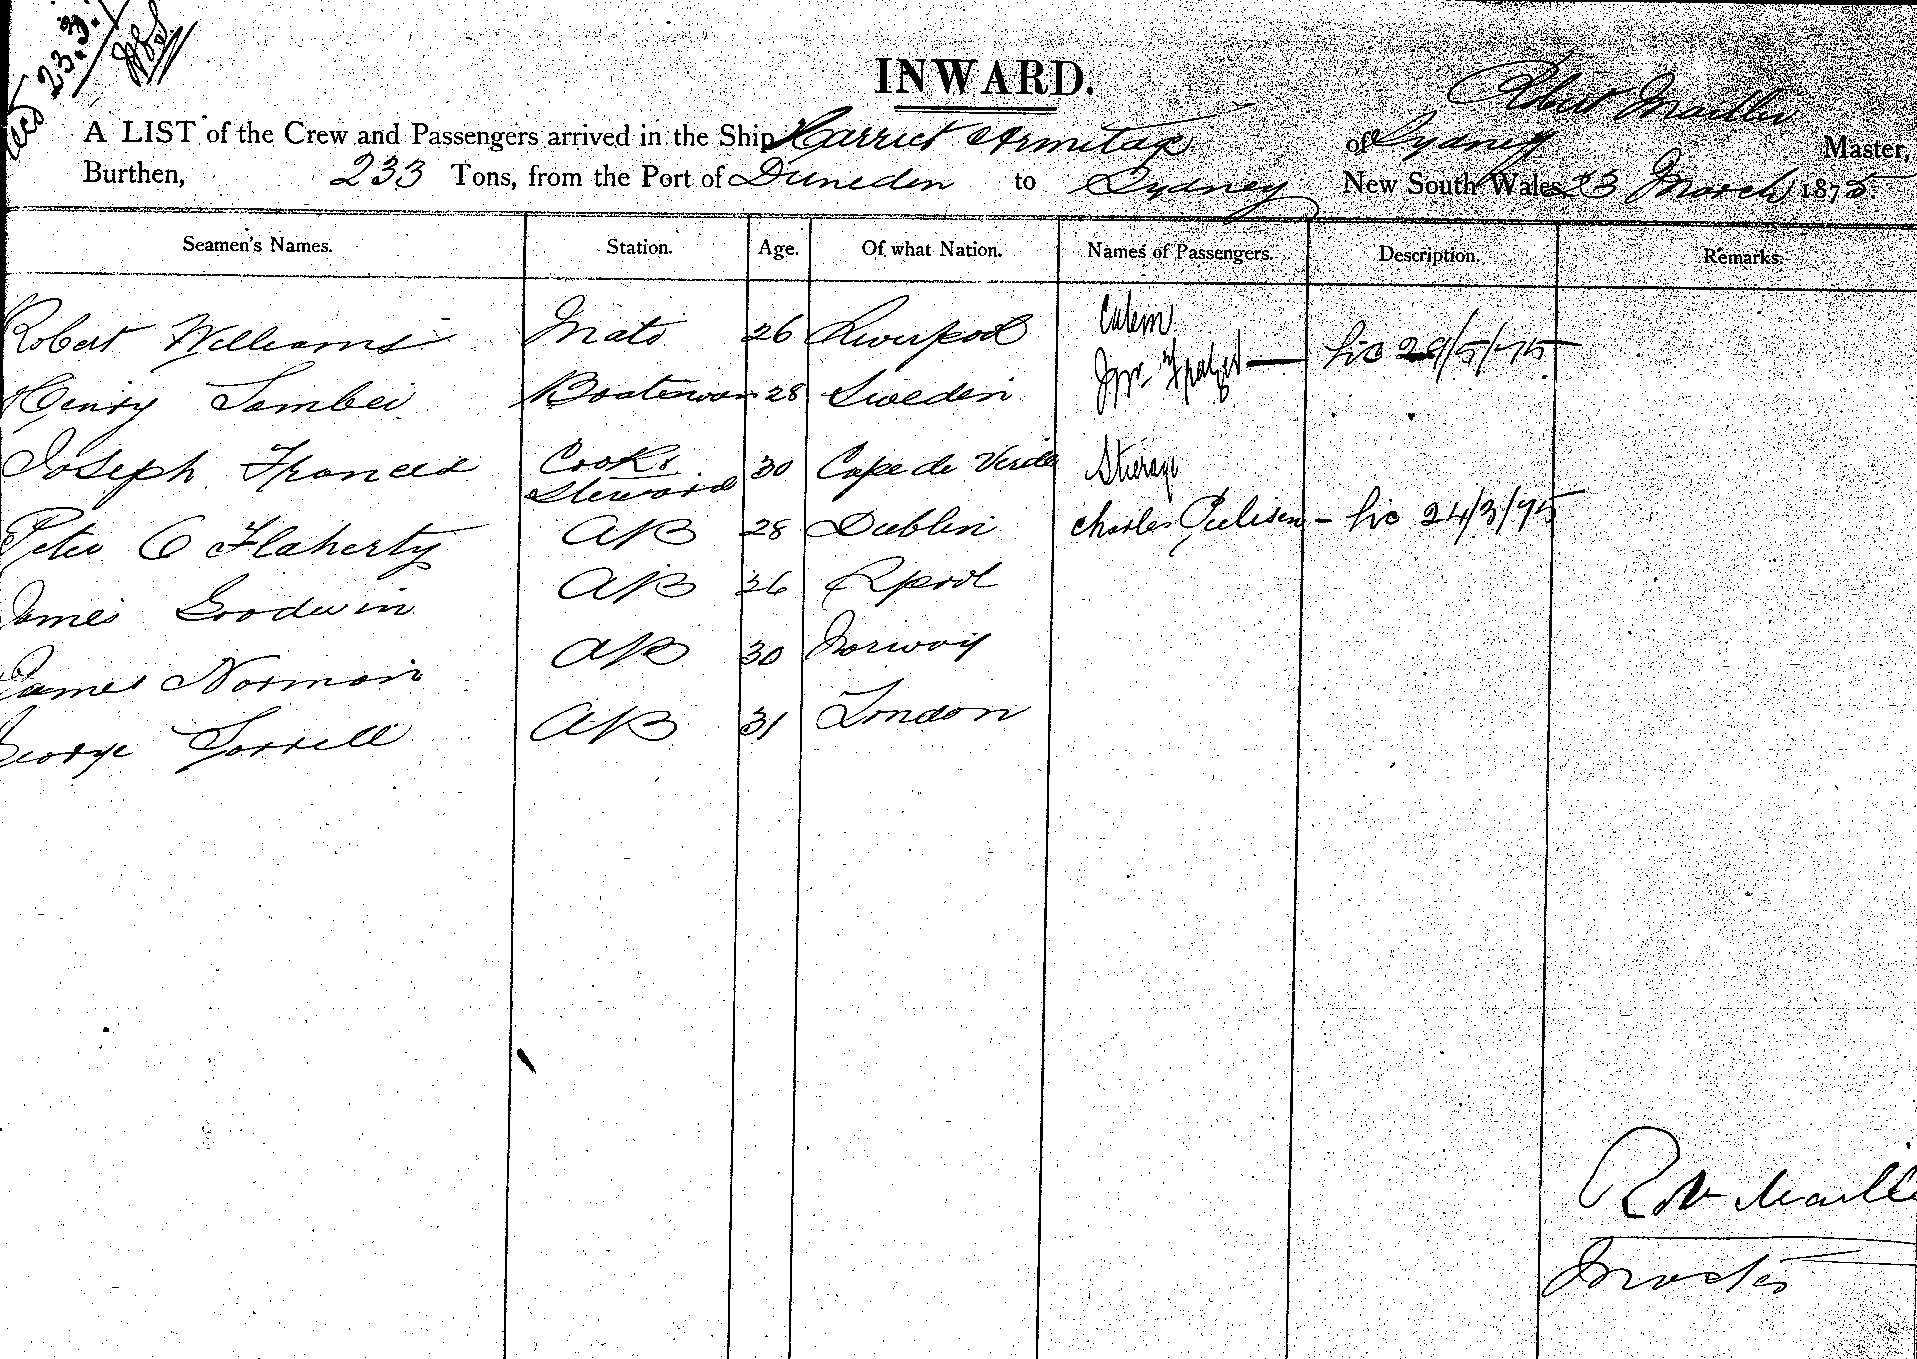 23.3.
INWARD.
Robert Mailler
A LIST of the Crew and Passengers arrived in the Ship Harriet Armitage of Sydney Master,
Burthen, 233 Tons, from the Port of Duneden to Sydney New South Wales 23 March 1875.
Seamen's Names. Station. Age. Of what Nation. Names of Passengers. Description. Remarks.
Robert Williams Mate 26 Liverpool Cabin
Mr 29/5/75
Henry Boatswan 28 Sweden
Joseph Frances Cook & Steward 30 Cape de Verde Steerage
Peter O Flaherty AB 28 Dublin Charles 24/3/75
James Goodwin AB 36 Lpool
James Norman AB 30 Norway
George Sorrell AB 31 London
Mailler
Master